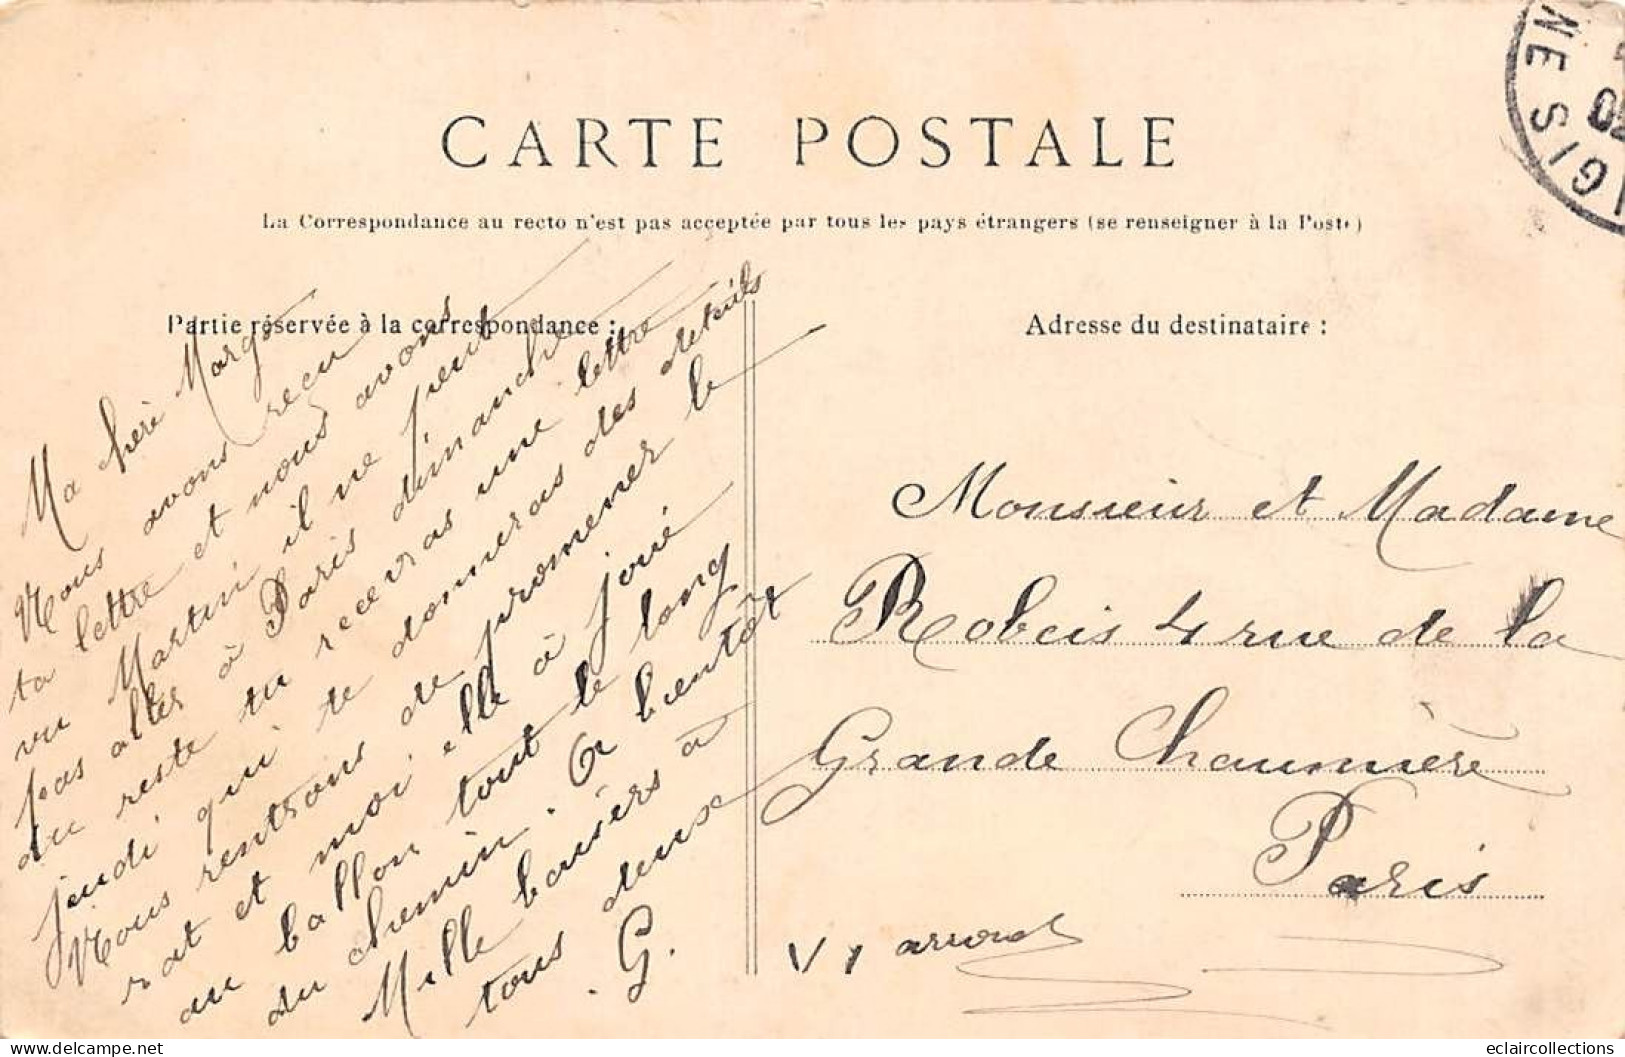 CARTE POSTALE
La Correspondance au recto n'est pas acceptée par tous les pays étrangers (se renseigner à la Poste)
Partie réservée à la correspondance :
Ma chère Margo
Nous avons reçu
ta lettre et nous avons
vu Martin il ne peut
pas aller à Paris dimanche
du reste tu recevras une lettre
jeudi qui te donneras des details
Nous rentrons de promener le
rat et moi elle à joué
au ballon tout le long
du chemin. A bientôt
Mille baisers à
tous deux
G.
Adresse du destinataire :
Monsieur et Madame
Robcis 4 rue de la
Grande Chaumière
Paris
VI arrond
NE S/ GI
eclaircollections